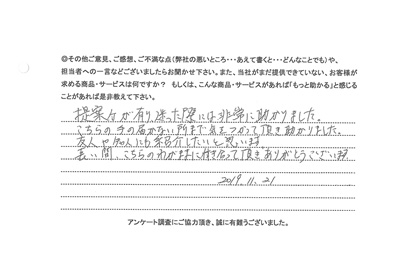 ◎その他ご意見、ご感想、ご不満な点(弊社の悪いところ・・・あえて書くと・・・どんなことでも)や、
担当者への一言などございましたらお聞かせ下さい。また、当社がまだ提供できていない、お客様が
求める商品・サービスは何ですか? もしくは、こんな商品・サービスがあれば「もっと助かる」と感じる
ことがあれば是非教えて下さい。
提案力が有り迷った際には非常に助かりました。
こちらの手の届かない所まで気をつかって頂き助かりました。
友人や知人にも紹介したいと思います。
長い間、こちらのわがままに付き合って頂きありがとうございます
2019.11.21
アンケート調査にご協力頂き、誠に有難うございました。